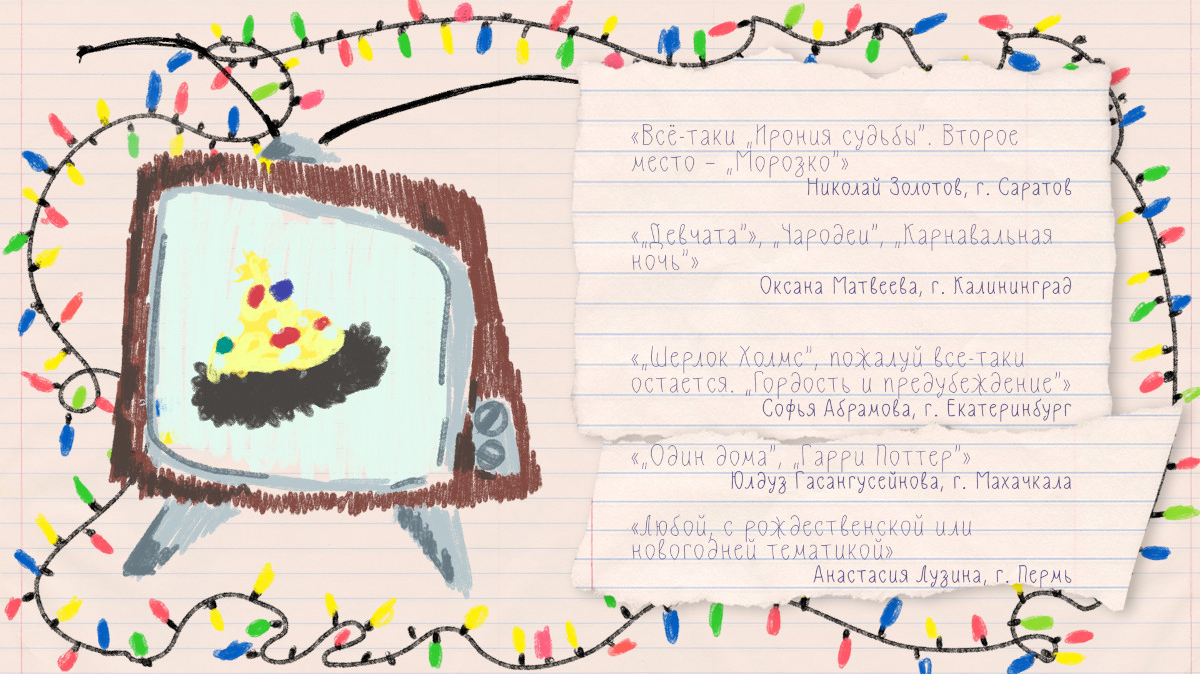 «Всё-таки „Ирония судьбы". Второе
место – „Морозко"»
Николай Золотов, г. Саратов
«„Девчата"», „Чародеи", „Карнавальная
ночь"»
Оксана Матвеева, г. Калининград
«„Шерлок Холмс", пожалуй все-таки
остается. „Гордость и предубеждение"»
Софья Абрамова, г. Екатеринбург
«„Один дома", „Гарри Поттер"»
Юлдуз Гасангусейнова, г. Махачкала
«Любой, с рождественской или
новогодней тематикой»
Анастасия Лузина, г. Пермь